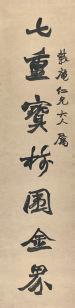 仁兄大人屬
七重寶樹圍金界